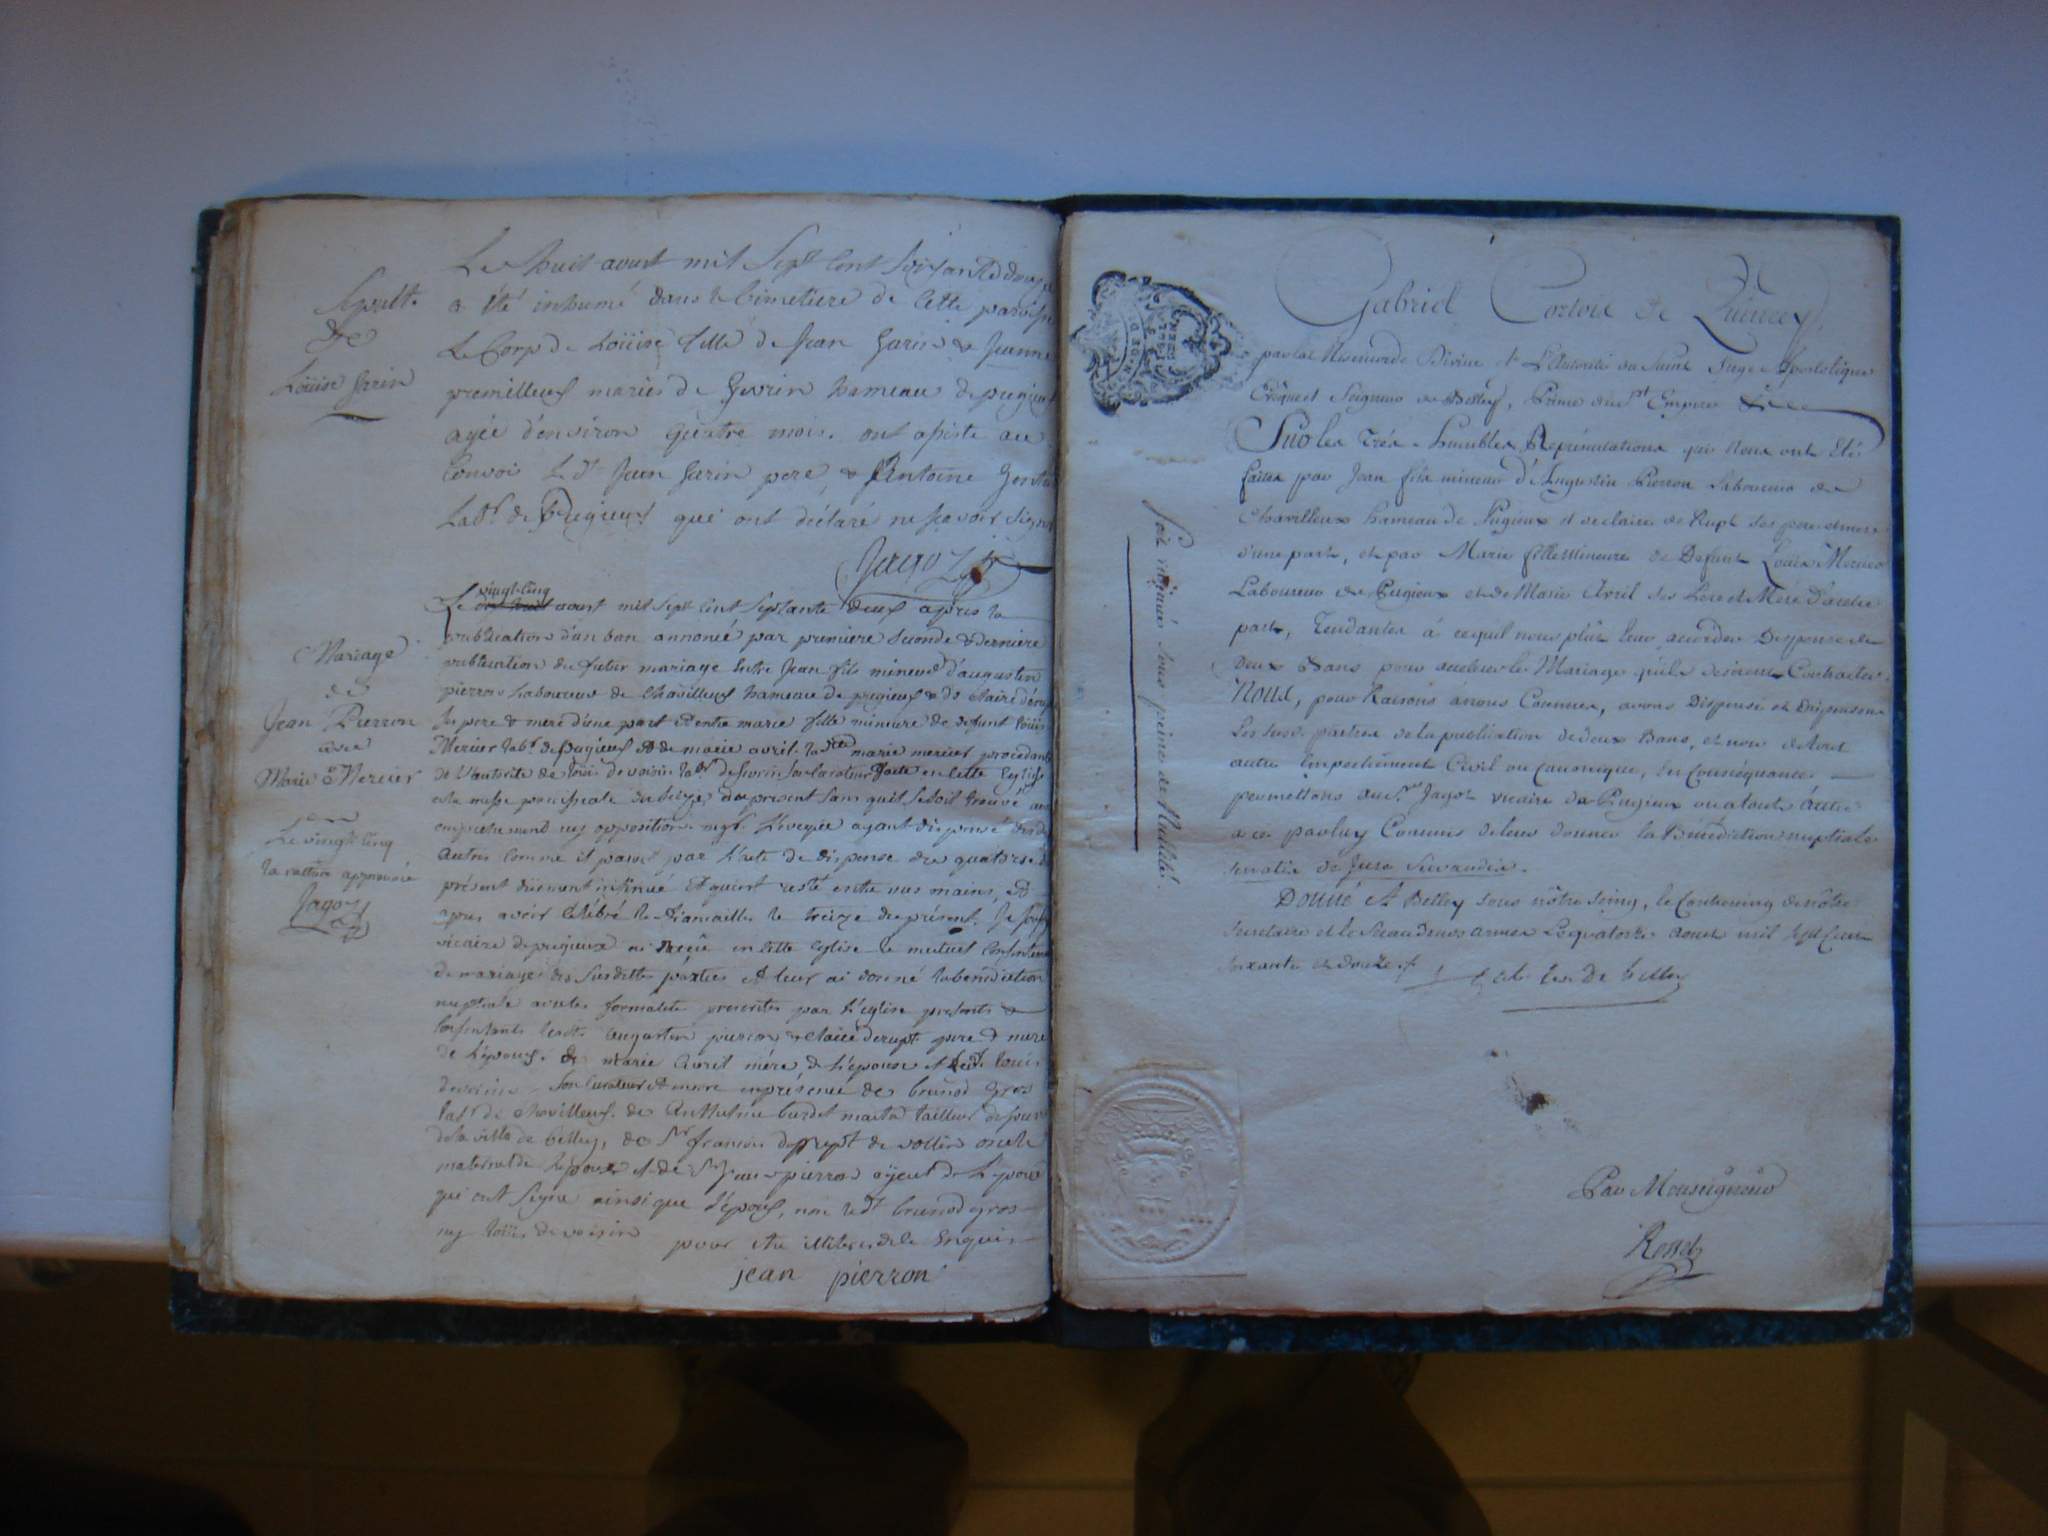 Sepult.
de
Loüise Garin
Le huit aoust mil sept cent soixante douze
a été inhumé dans le Cimetiere de cette paroisse
Le Corp de Loüise fille de Jean Garin & Jeanne
premilleux mariés de Gevrin hameau de pugieu
agée d'environ quatre mois. ont assisté au
Convoi Le dt Jean Garin pere, & Antoine
Labr. de Pugieux qui ont déclaré ne sçavoir signer
Jagoz
Mariage
de
Jean Pierron
avec
Marie Mercier
Le vingt cinq
la rature approuvée
Jagoz
vingt-cinq
Le dix huit aoust mil sept cent septante deux après la
publication d'un ban annoncé par premiere seconde & derniere
publication du futur mariage entre Jean fils mineur d'augustin
pierron Laboureur de Chavilleux hameau de pugieux & de Claire
ses pere & mere d'une part et entre marie fille mineure de defunt Loüis
Mercier labr. de pugieux et de marie avril. la dite marie mercier procedante
de l'autorité de Loüis de voisin labr. de son curateur faite en cette Eglise
a la messe paroissiale du seize du present sans qu'il se soit trouvé
empechement ny opposition mgr. L'eveque ayant dispensé des deux
autres comme il paroit par l'acte de dispense du quatorze du
présent düement insinué et qui est resté entre nos mains, et
apres avoir célébré les fiançailles le treize du présent. Je soussigné
vicaire de pugieux ai reçu en cette Eglise le mutuel consentement
de mariage des susdittes parties et leur ai donné la benediction
nuptiale avec les formalités prescrites par l'église presents &
consentants lesdts augustin pierron & claire derupt pere & mere
de l'epoux. & marie avril mére de l'epouse et Loüis
devoisin son curateur et encore en présence de brunod gros
labr. de Chavilleux. de Anthelme burdet maitre tailleur
de la ville de belley, de Sr. françois derupt de vollin oncle
maternel de l'epoux et de Sr Jean pierron ayeul de l'epoux
qui ont signé ainsi que l'époux, non ledt brunod gros
ny loüis de voisin pour etre illiteres de ce enquis
jean pierron
Gabriel Cortois de Quincey,
par la Misericorde Divine et L'Autorité du Saint Siege Apostolique
Evêque et Seigneur de Belley, Prince du St Empire &c
Sur les Très-humbles Représentations qui Nous ont été
faites par Jean fils mineur d'Augustin Pierron Laboureur de
Chavilleux hameau de Pugieux et de claire de Rupt ses pere et mere
d'une part, et par Marie fille Mineure de Defunt Loüis Mercier
Laboureur de Pugieux et de Marie Avril ses Pere et Mere D'autre
part, Tendantes à ce qu'il nous plût leur accorder Dispense de
Deux Bans pour celebrer le Mariage qu'ils desirent Contracter.
Nous, pour Raisons à nous Connues, avons Dispensé et Dispensons
Les susd. parties de la publication de deux Bans, et non de tout
autre Empechement Civil ou canonique, En Consequance
permettons au Sr Jagoz vicaire de Pugieux ou à tout autre
de ce par luy Commis de leur donner la Bénédiction nuptiale
servatis de Jure Servandis.
Donné A Belley sous nôtre seing, le Contreseing de nôtre
Secretaire et le Sceau de nos armes Le quatorze aout mil sept Cent
soixante et douze.
Par Monseigneur
Rosset
soit insinué sous peine de Nullité.